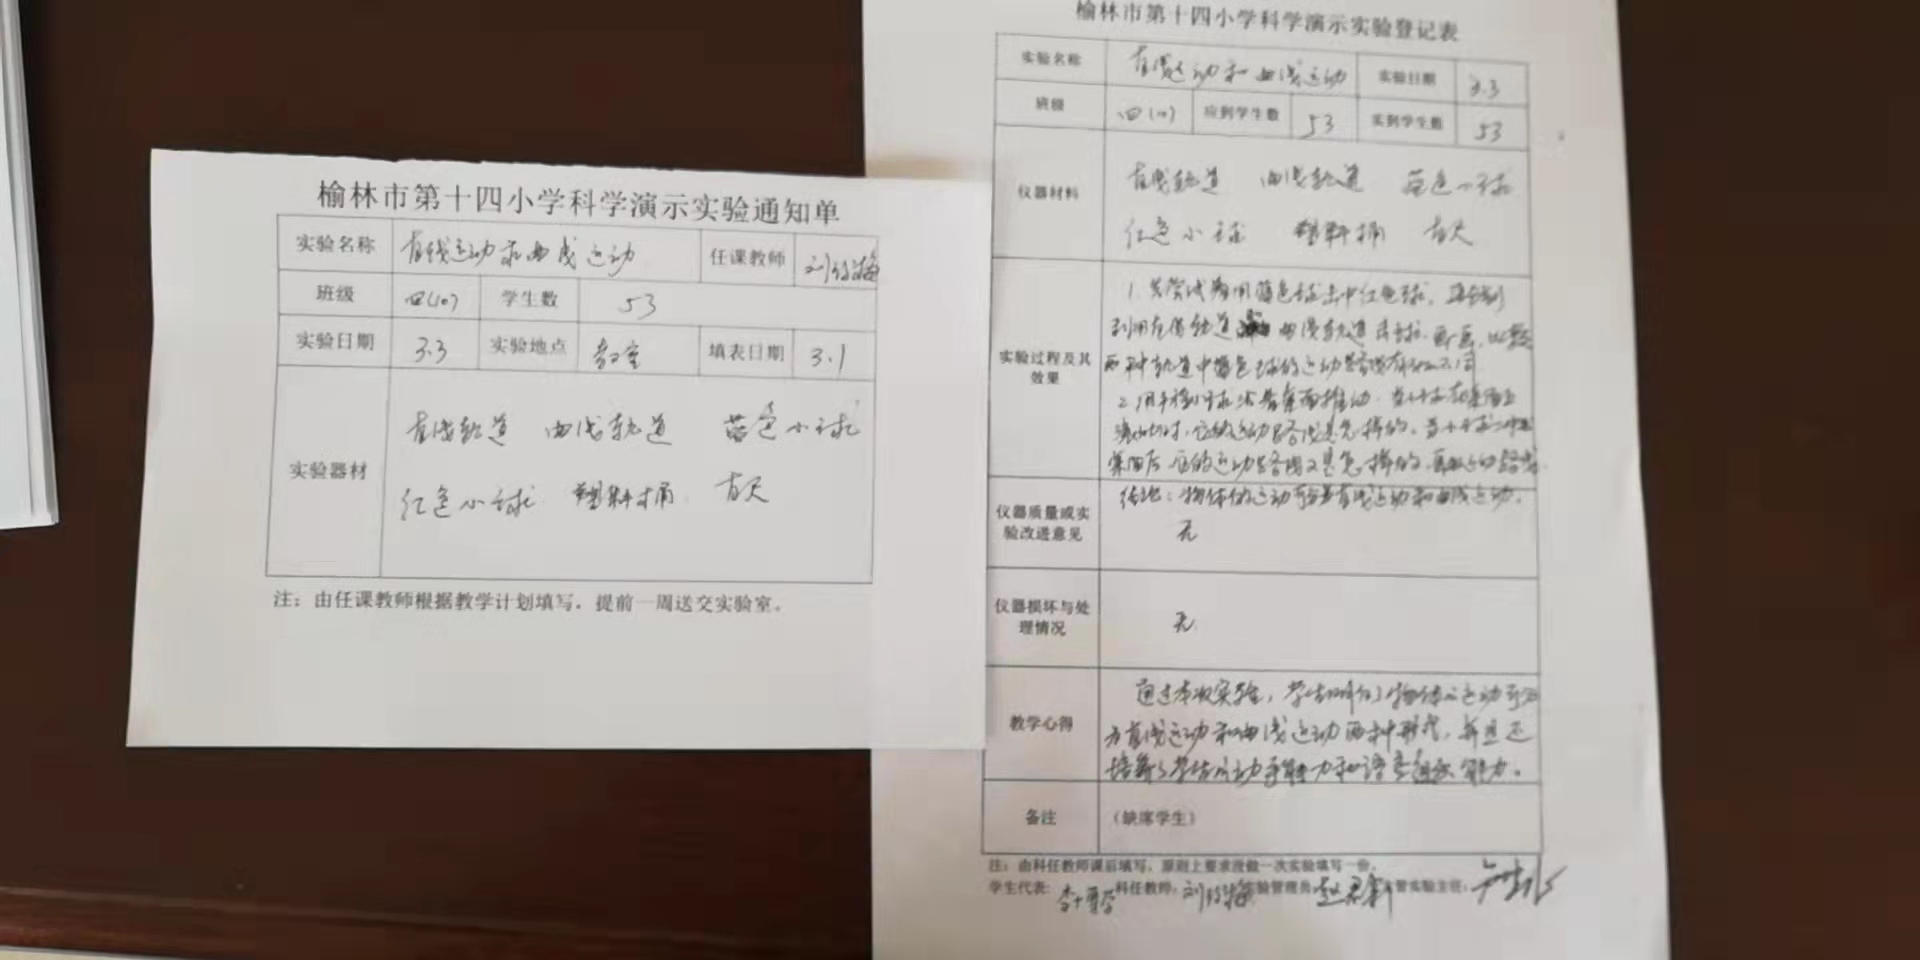 榆林市第十四小学科学演示实验通知单
实验名称 直线运动和曲线运动 任课教师 刘
班级 四(10) 学生数 53
实验日期 3.3 实验地点 教室 填表日期 3.1
实验器材
直线轨道 曲线轨道 蓝色小球
红色小球 塑料桶 直尺
注：由任课教师根据教学计划填写，提前一周送交实验室。
榆林市第十四小学科学演示实验登记表
实验名称 直线运动和曲线运动 实验日期 3.3
班级 四(10) 应到学生数 53 实到学生数 53
仪器材料
直线轨道 曲线轨道 蓝色小球
红色小球 塑料桶 直尺
实验过程及其效果
1. 先尝试着用蓝色球击中红色球，再分别
利用直线轨道 曲线轨道击球，画一画，比较
两种轨道中蓝色球的运动路线有什么不同
2. 用手指小球沿着桌面推动，当小球在桌面上
滚动时，它的运动路线是怎样的。当小球冲出
桌面后，它的运动路线又是怎样的，画出运动路线
结论：物体的运动 直线运动和曲线运动。
仪器质量或实验改进意见
无
仪器损坏与处理情况
无
教学心得
通过本次实验，学生 了物体的运动可分
为直线运动和曲线运动两种形式，并且还
培养了学生的动手能力和语言组织能力。
备注 (缺席学生)
注：由科任教师课后填写，原则上要求没做一次实验填写一份。
学生代表： 科任教师：刘 实验管理员：赵 管实验主任：